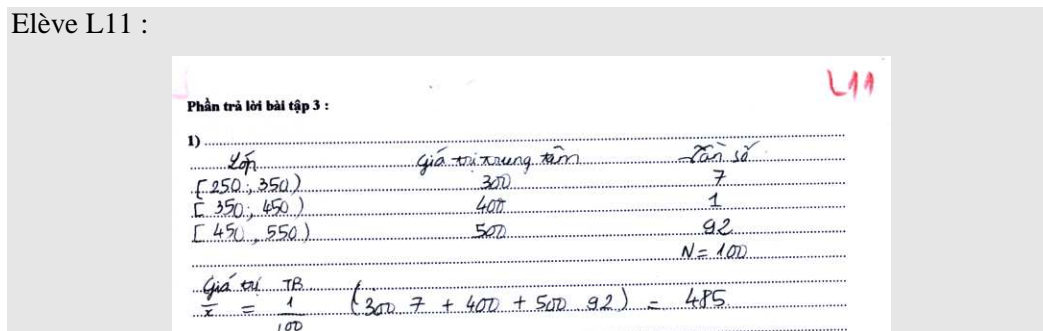 Elève L11 :
L11
Phần trả lời bài tập 3 :
1)
Lớp Giá trị trung tâm Tần số
[250 ; 350) 300 7
[350 ; 450) 400 1
[450 , 550) 500 92
N = 100
Giá trị TB
x̄ = 1/100 (300 7 + 400 + 500 92) = 485